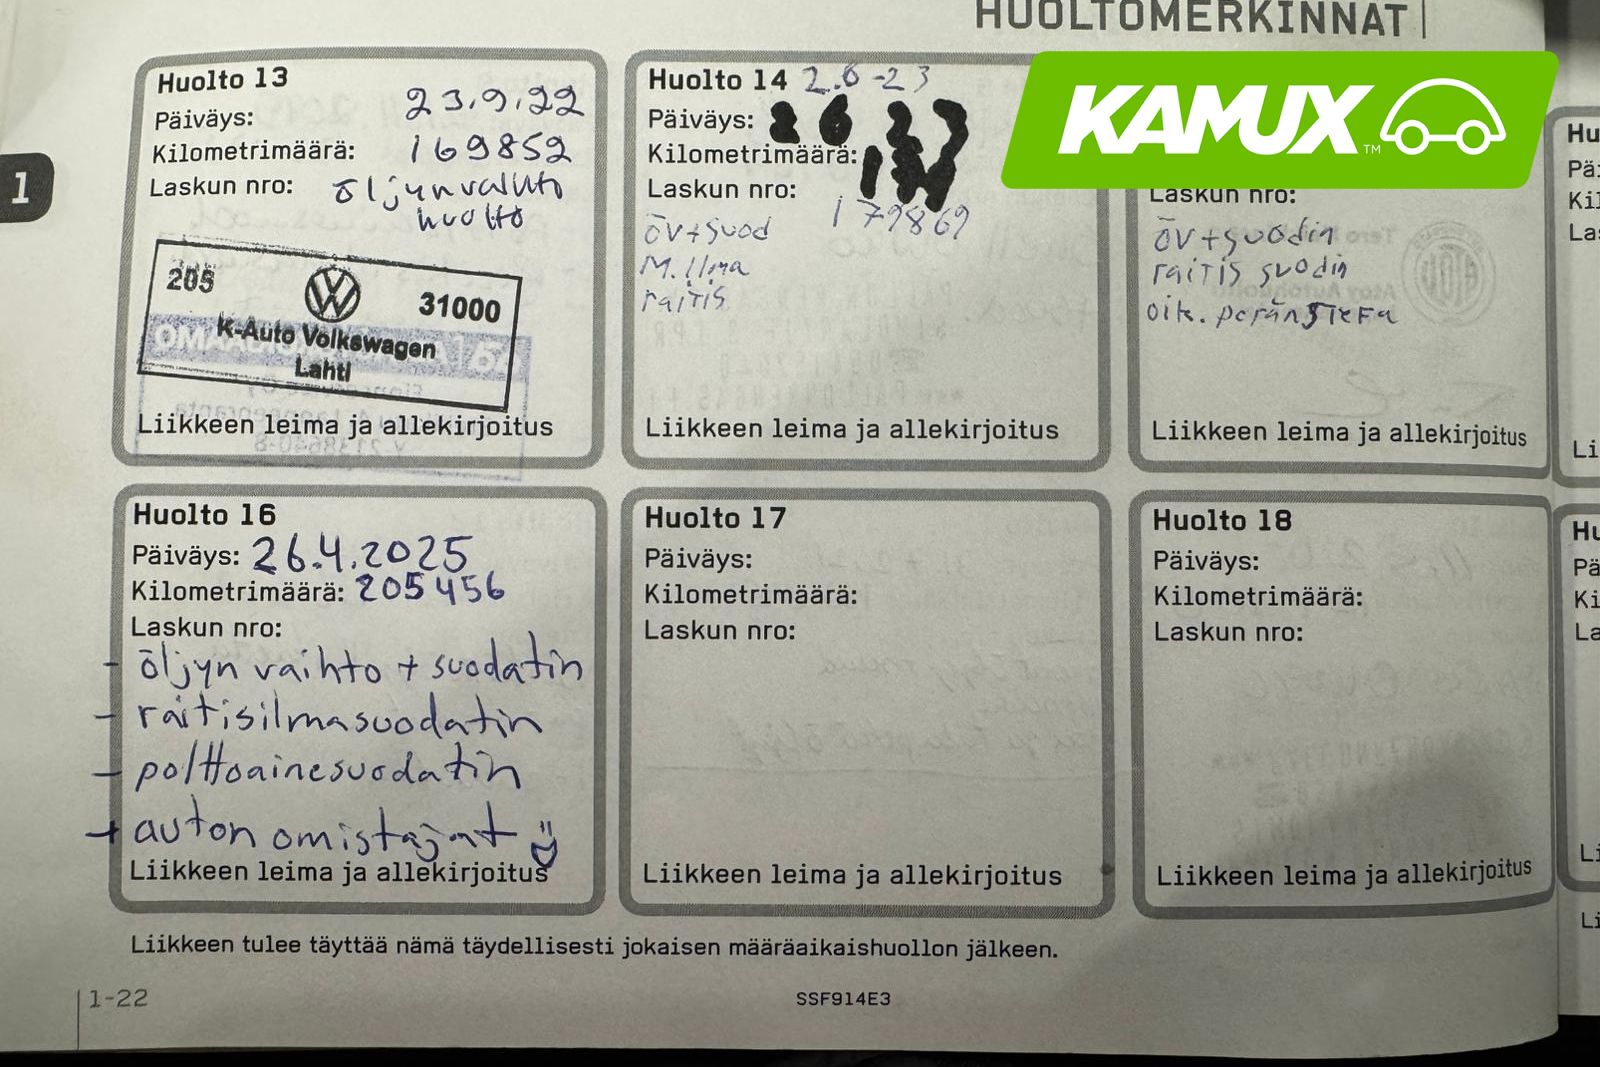 HUOLTOMERKINNÄT
KAMUX™
1
Huolto 13
Päiväys: 23.9.22
Kilometrimäärä: 169852
Laskun nro: öljynvaihto
huolto
205 31000
K-Auto Volkswagen
Lahti
Liikkeen leima ja allekirjoitus
Huolto 14 2.6-23
Päiväys:
Kilometrimäärä:
Laskun nro: 179869
öv+suod
M.Ilma
raitis
Liikkeen leima ja allekirjoitus
Laskun nro:
öv+suodin
raitis suodin
oik.
Liikkeen leima ja allekirjoitus
Huolto 16
Päiväys: 26.4.2025
Kilometrimäärä: 205456
Laskun nro:
- öljyn vaihto + suodatin
- raitisilmasuodatin
- polttoainesuodatin
+ auton omistajat
Liikkeen leima ja allekirjoitus
Huolto 17
Päiväys:
Kilometrimäärä:
Laskun nro:
Liikkeen leima ja allekirjoitus
Huolto 18
Päiväys:
Kilometrimäärä:
Laskun nro:
Liikkeen leima ja allekirjoitus
Liikkeen tulee täyttää nämä täydellisesti jokaisen määräaikaishuollon jälkeen.
1-22
SSF914E3